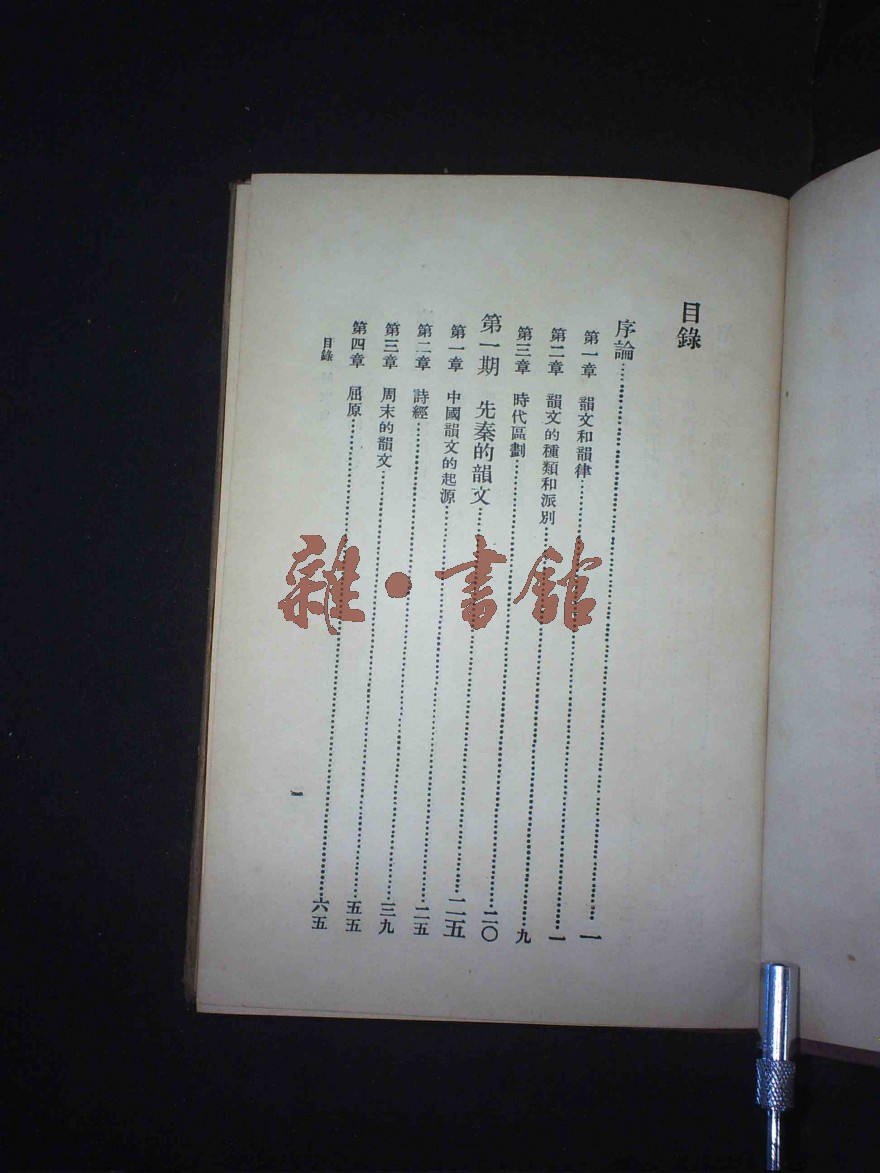 目錄
序論……一
第一章　韻文和韻律……一
第二章　韻文的種類和派別……九
第三章　時代區劃……二〇
第一期　先秦的韻文……二五
第一章　中國韻文的起源……二五
第二章　詩經……三九
第三章　周末的韻文……五五
第四章　屈原……六五
目錄
一
雜·書館